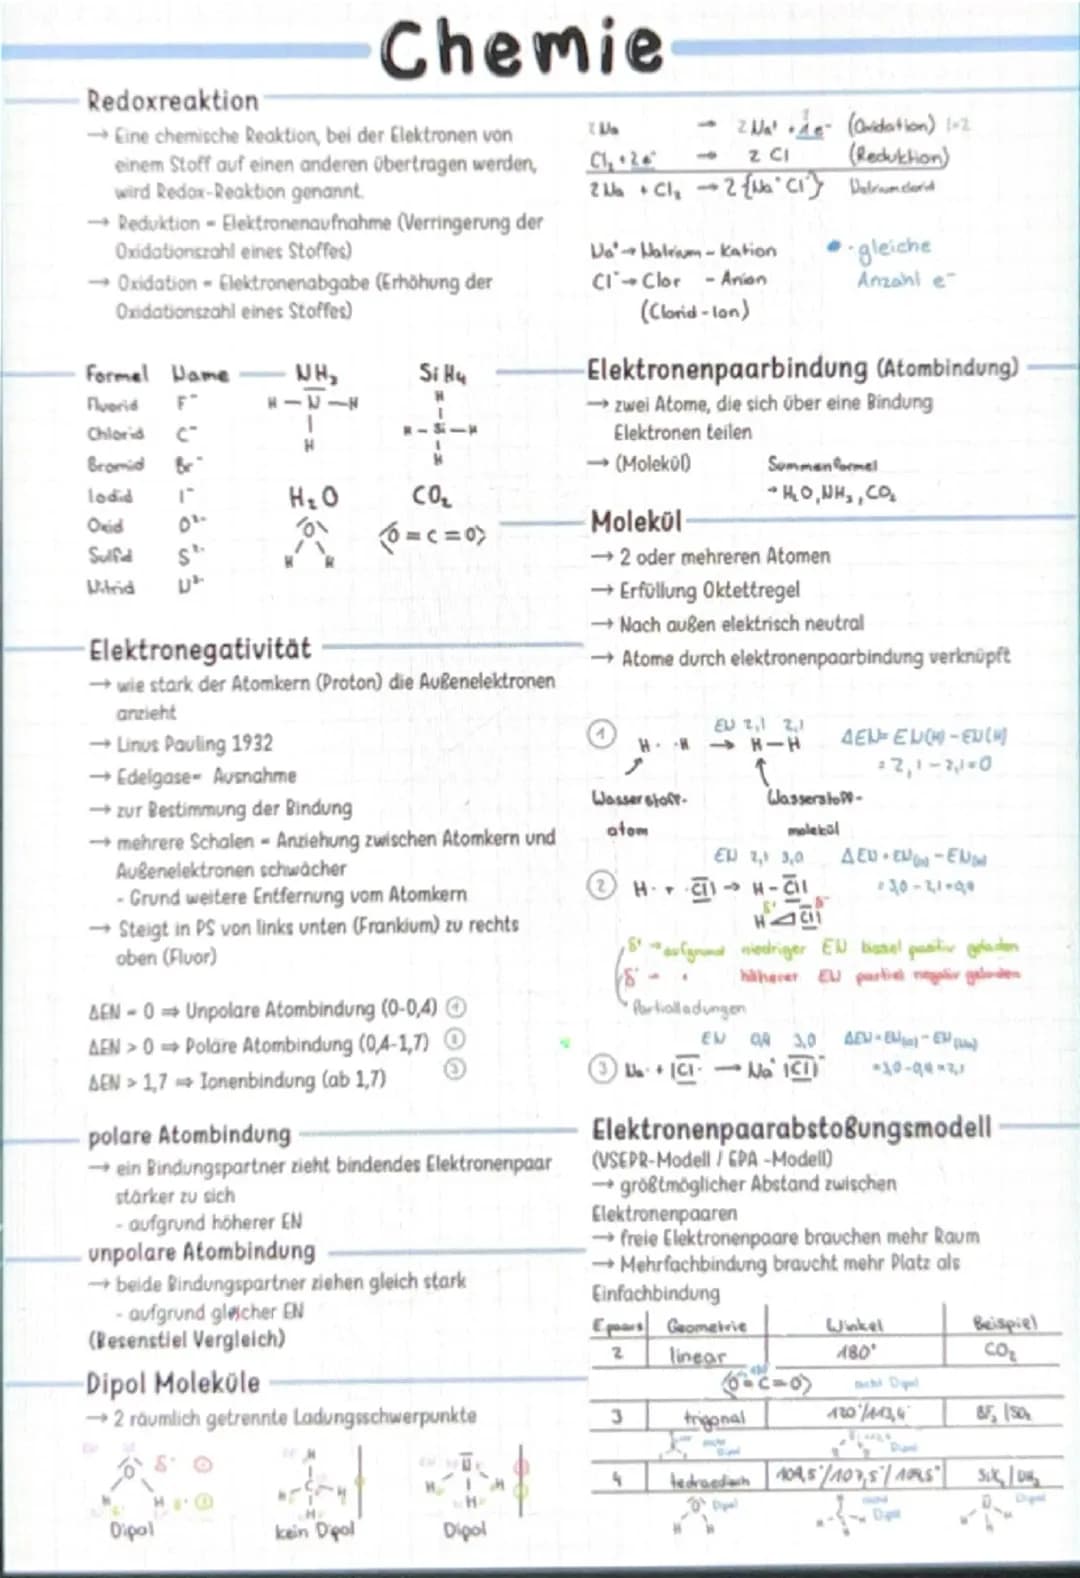 Chemie
Redoxreaktion
→ Eine chemische Reaktion, bei der Elektronen von
einem Stoff auf einen anderen übertragen werden,
wird Redox-Reaktion genannt.
→ Reduktion = Elektronenaufnahme (Verringerung der
Oxidationszahl eines Stoffes)
→ Oxidation = Elektronenabgabe (Erhöhung der
Oxidationszahl eines Stoffes)
2 Na → 2 Na⁺ + e⁻ (Oxidation)
Cl₂ + 2e⁻ → 2 Cl (Reduktion)
2 Na + Cl₂ → 2 {Na⁺Cl⁻}
Na⁺ → Natrium - Kation
Cl⁻ → Clor - Anion
(Clorid - Ion)
gleiche
Anzahl e⁻
Formel Name
Fluorid F⁻
Chlorid C⁻
Bromid Br⁻
Iodid I⁻
Oxid O²⁻
Sulfid S²⁻
Nitrid N³⁻
NH₃
H - N - H
H
SiH₄
H
H - Si - H
H
H₂O
O
H H
CO₂
O = C = O
Elektronenpaarbindung (Atombindung)
→ zwei Atome, die sich über eine Bindung
Elektronen teilen
→ (Molekül)
Summenformel
→ H₂O, NH₃, CO₂
Molekül
→ 2 oder mehreren Atomen
→ Erfüllung Oktettregel
→ Nach außen elektrisch neutral
→ Atome durch elektronenpaarbindung verknüpft
Elektronegativität
→ wie stark der Atomkern (Proton) die Außenelektronen
anzieht
→ Linus Pauling 1932
→ Edelgase= Ausnahme
→ zur Bestimmung der Bindung
→ mehrere Schalen = Anziehung zwischen Atomkern und
Außenelektronen schwächer
- Grund weitere Entfernung vom Atomkern
→ Steigt in PS von links unten (Frankium) zu rechts
oben (Fluor)
ΔEN = 0 ⇒ Unpolare Atombindung (0-0,4) ①
ΔEN > 0 ⇒ Polare Atombindung (0,4-1,7) ②
ΔEN > 1,7 ⇒ Ionenbindung (ab 1,7) ③
EN 2,1 2,1
① H· ·H → H - H
ΔEN = EN(H) - EN(H)
= 2,1 - 2,1 = 0
Wasserstoff-
atom
Wasserstoff-
molekül
EN 2,1 3,0
② H· + ·Cl → H - Cl
= 3,0 - 2,1 = 0,9
H Cl
δ⁺ → aufgrund niedriger EN positiv geladen
δ⁻ höherer EN partiel negativ geladen
Partialladungen
EN 0,9 3,0
③ Na· + Cl· → Na⁺ Cl⁻
= 3,0 - 0,9 = 2,1
polare Atombindung
→ ein Bindungspartner zieht bindendes Elektronenpaar
stärker zu sich
- aufgrund höherer EN
unpolare Atombindung
→ beide Bindungspartner ziehen gleich stark
- aufgrund gleicher EN
(Besenstiel Vergleich)
Dipol Moleküle
→ 2 räumlich getrennte Ladungsschwerpunkte
Dipol
kein Dipol
Dipol
Elektronenpaarabstoßungsmodell
(VSEPR-Modell / EPA -Modell)
→ größtmöglicher Abstand zwischen
Elektronenpaaren
→ freie Elektronenpaare brauchen mehr Raum
→ Mehrfachbindung braucht mehr Platz als
Einfachbindung
Epaare Geometrie Winkel Beispiel
2 linear 180° CO₂
O = C = O nicht Dipol
3 trigonal
Dipol
4 109,5°/107,5°/
Dipol